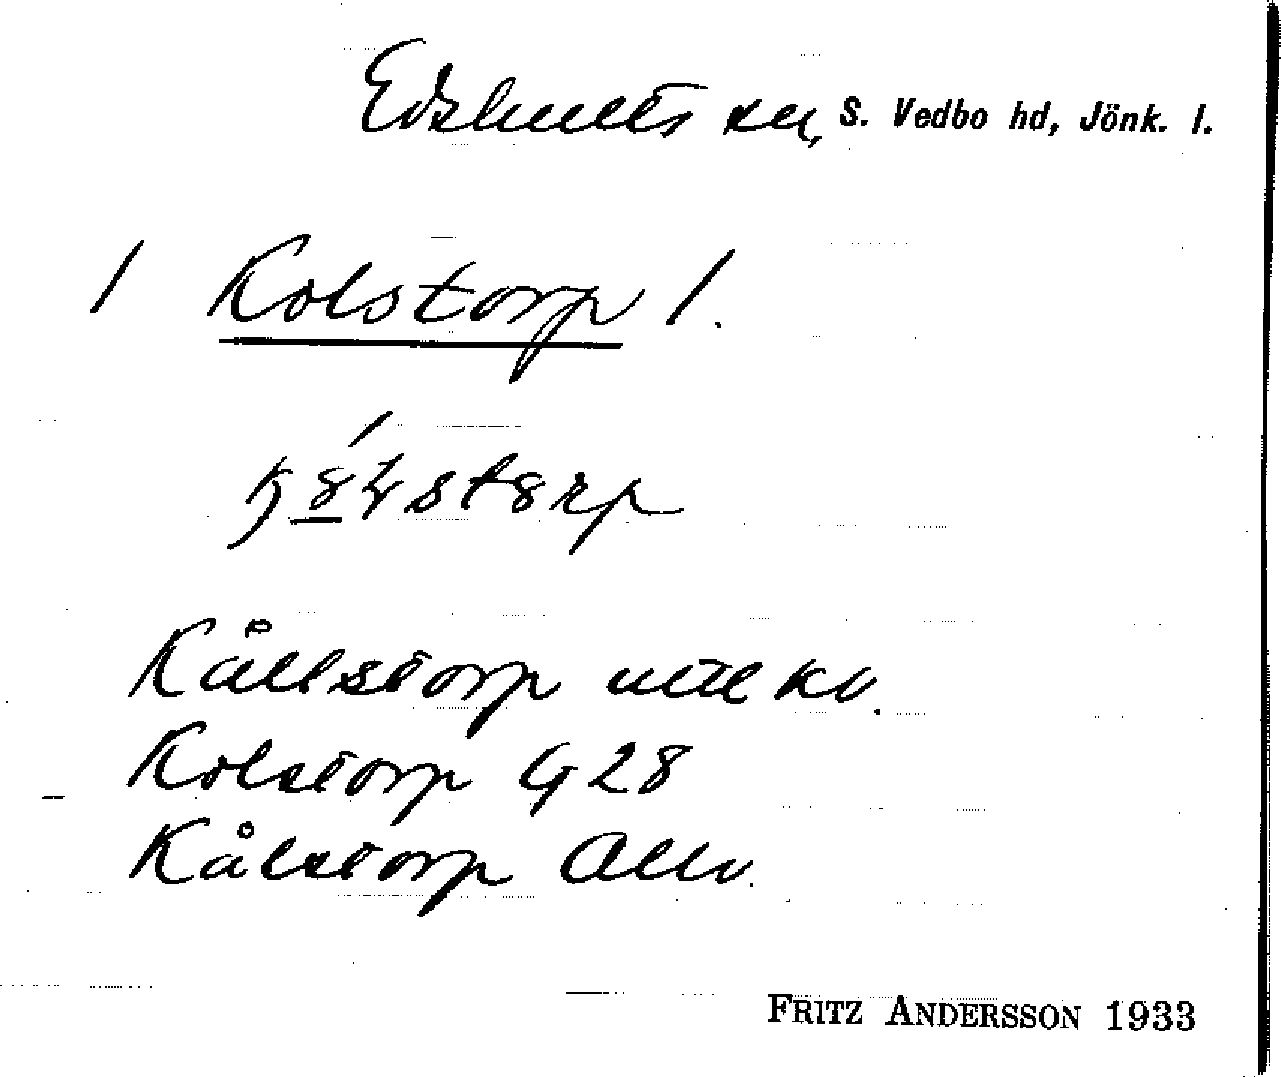 Edshults sn, S. Vedbo hd, Jönk. l.
1 Kolstorp 1.
Kållstorp uttl kv.
Kolstorp G 28
Kålstorp Allv.
FRITZ ANDERSSON 1933